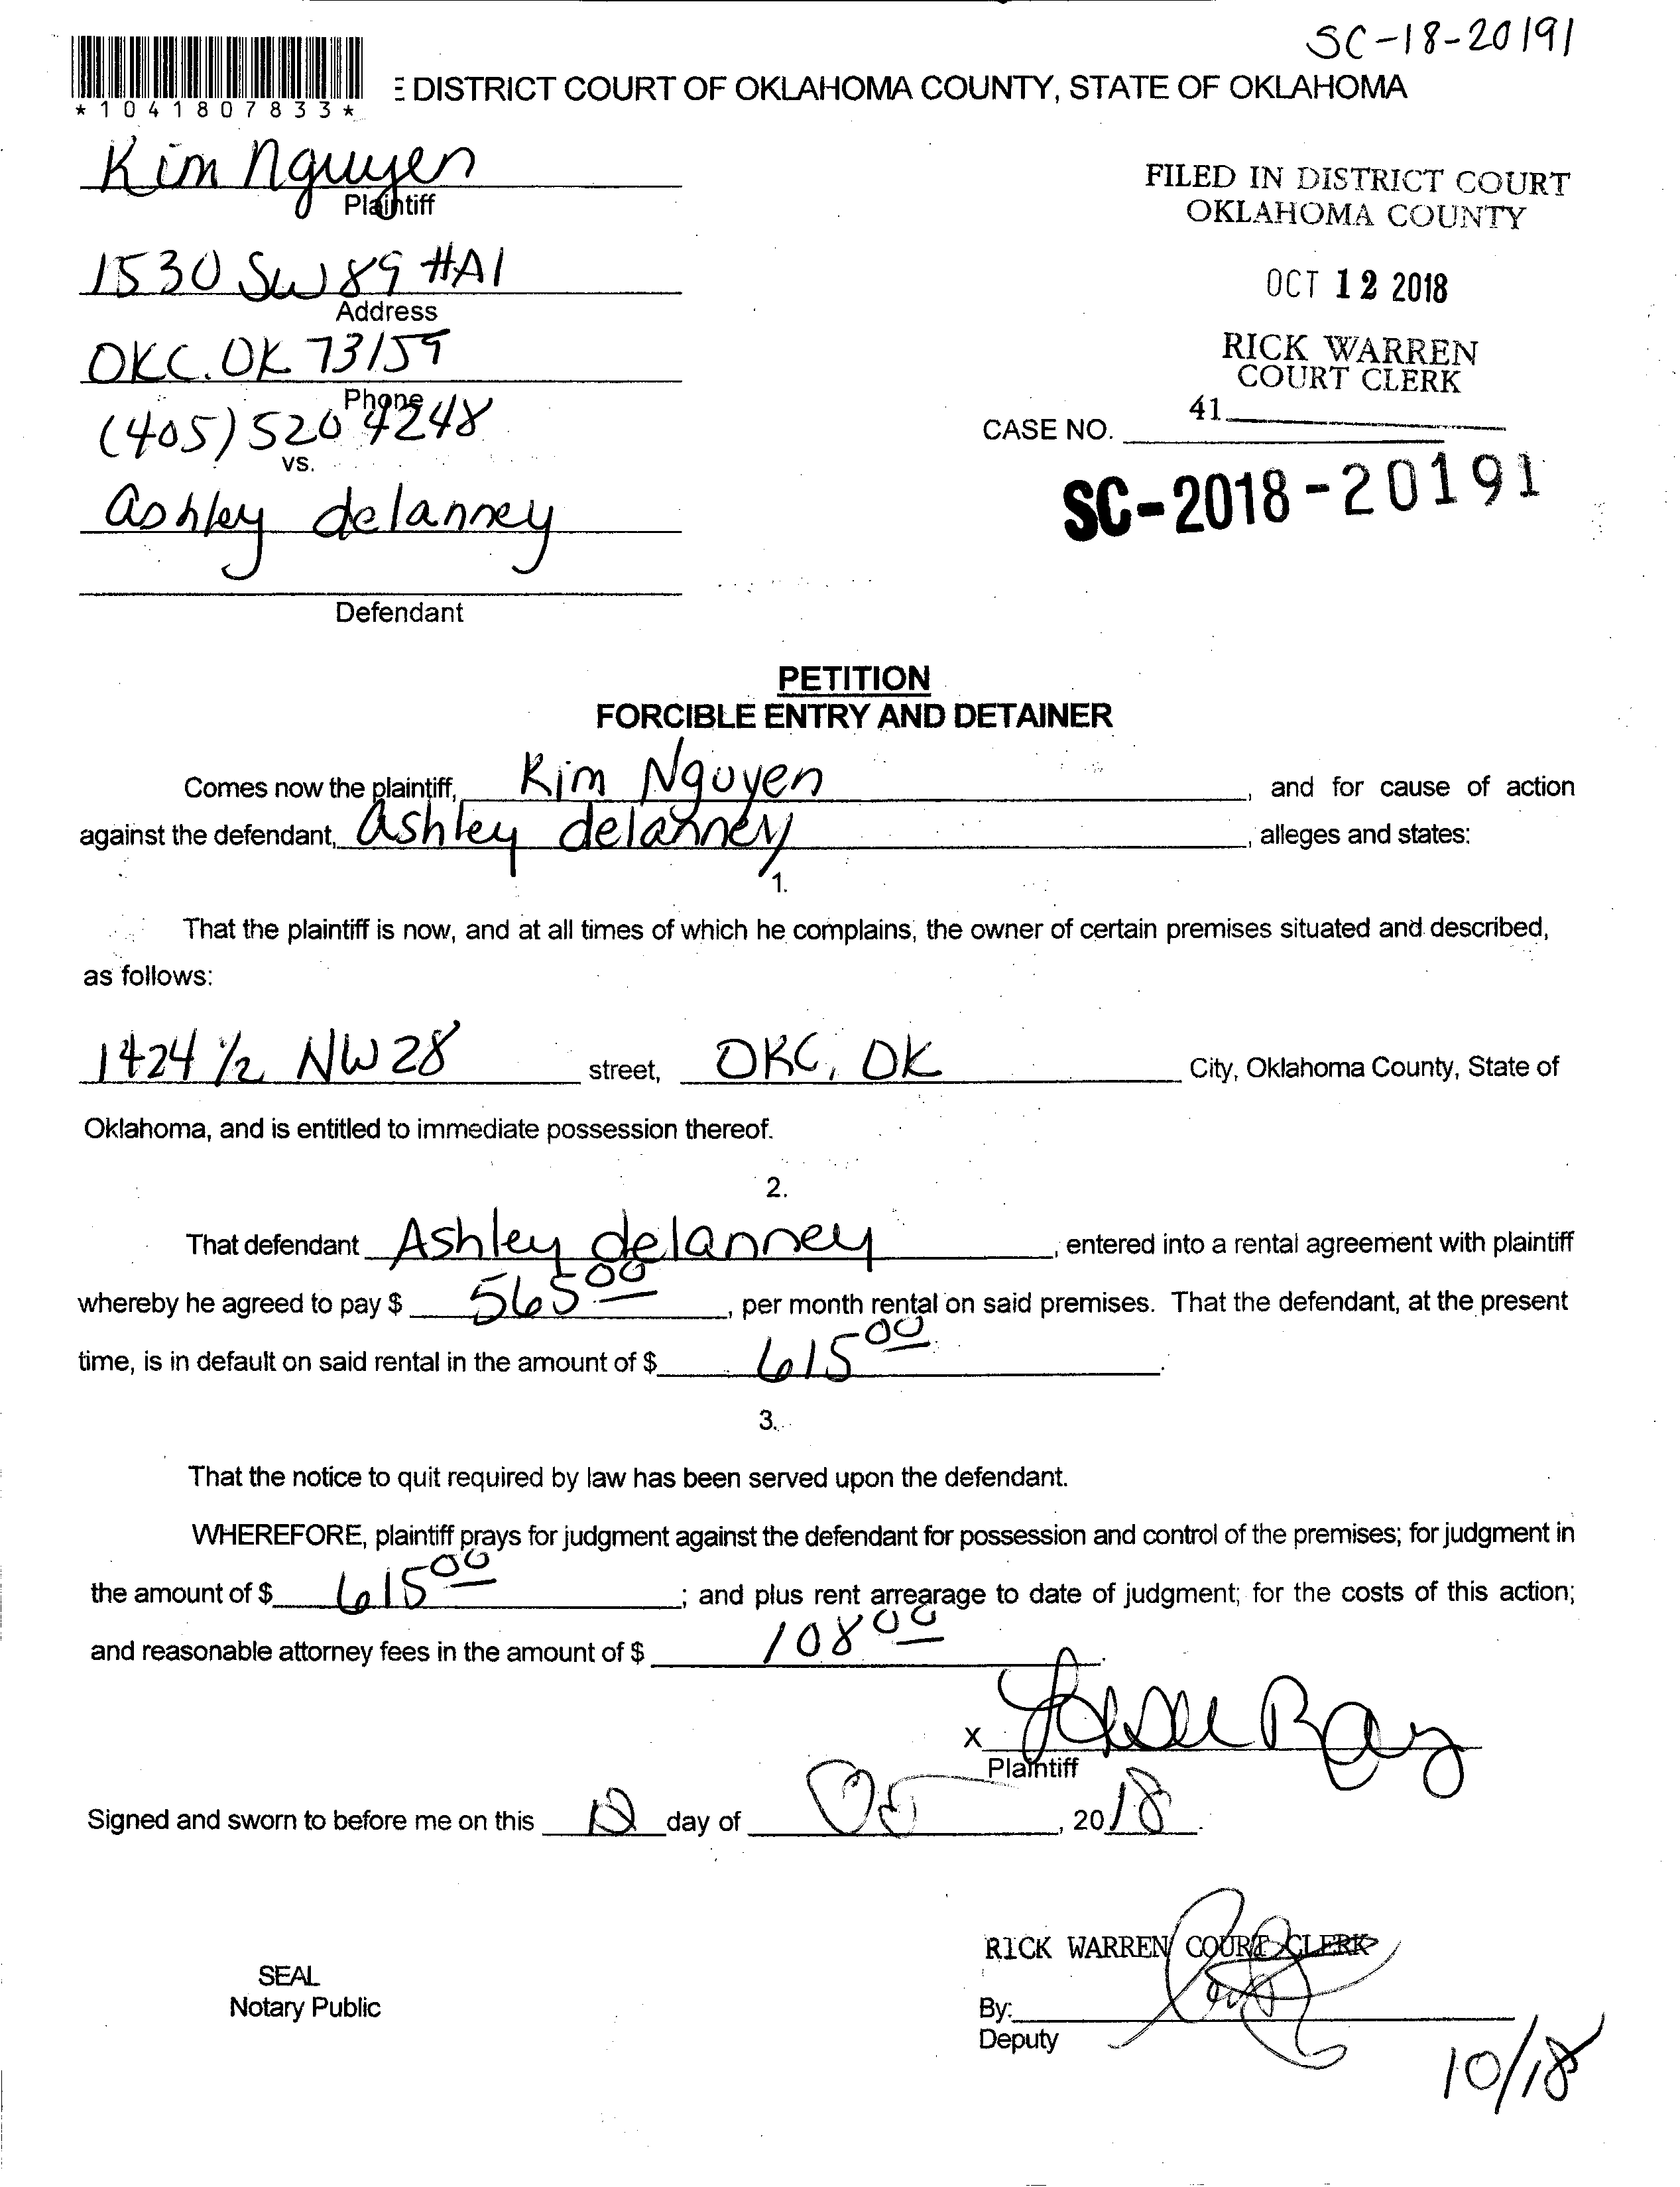 SC-18-20191
*1041807833*
E DISTRICT COURT OF OKLAHOMA COUNTY, STATE OF OKLAHOMA
Kim Nguyen
Plaintiff
FILED IN DISTRICT COURT
OKLAHOMA COUNTY
1530 SW 89 #A1
Address
OCT 12 2018
OKC. OK 73159
Phone
RICK WARREN
COURT CLERK
(405) 520 4248
41
CASE NO.
vs.
SC-2018-20191
Ashley delanney
Defendant
PETITION
FORCIBLE ENTRY AND DETAINER
Comes now the plaintiff, Kim Nguyen, and for cause of action
against the defendant, Ashley delanney, alleges and states:
1.
That the plaintiff is now, and at all times of which he complains, the owner of certain premises situated and described,
as follows:
1424 1/2 NW 28 street, OKC, OK City, Oklahoma County, State of
Oklahoma, and is entitled to immediate possession thereof.
2.
That defendant Ashley delanney, entered into a rental agreement with plaintiff
whereby he agreed to pay $ 565 00, per month rental on said premises. That the defendant, at the present
time, is in default on said rental in the amount of $ 615 00.
3.
That the notice to quit required by law has been served upon the defendant.
WHEREFORE, plaintiff prays for judgment against the defendant for possession and control of the premises; for judgment in
the amount of $ 615 00; and plus rent arrearage to date of judgment; for the costs of this action;
and reasonable attorney fees in the amount of $ 108 00.
X Ray
Plaintiff
Signed and sworn to before me on this 12 day of Oct, 2018.
RICK WARREN COURT CLERK
SEAL
Notary Public
By:
Deputy
10/18